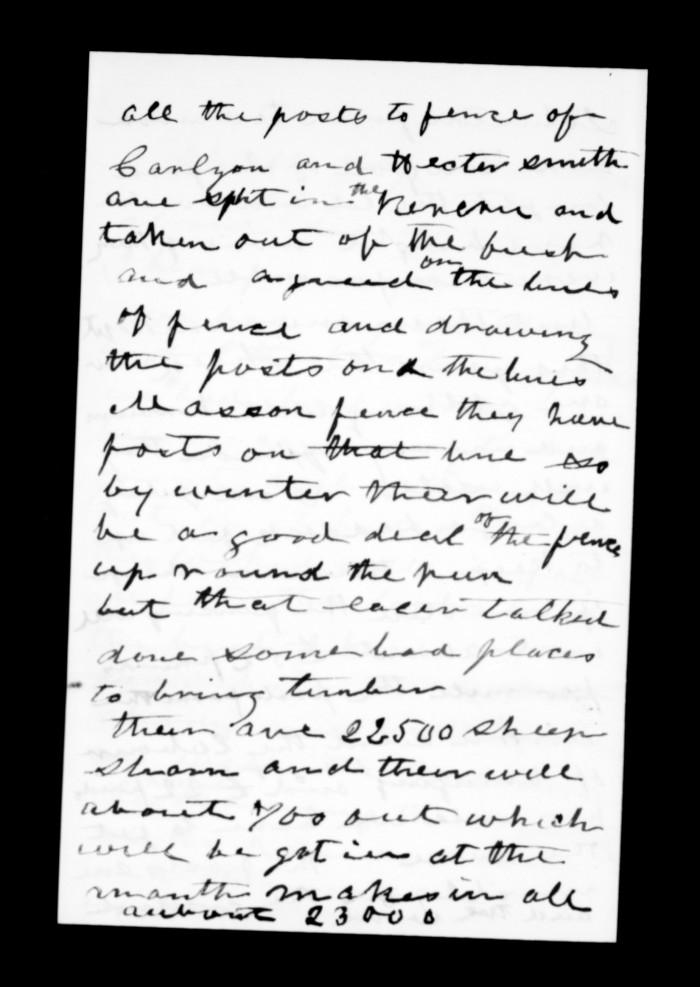 all the posts to fence of
Carlyon and Hecter smith
are split in the and
taken out of the bush
and agreed on the lines
of fence and drawing
the posts on the lines
Masson fence they have
posts on that line so
by winter their will
be a good deal of the fence
up round the run
but that talked
done some bad places
to bring timber
their are 22500 sheep
shorn and their will
about 700 out which
will be got in at the
month makes in all
aubout 23000